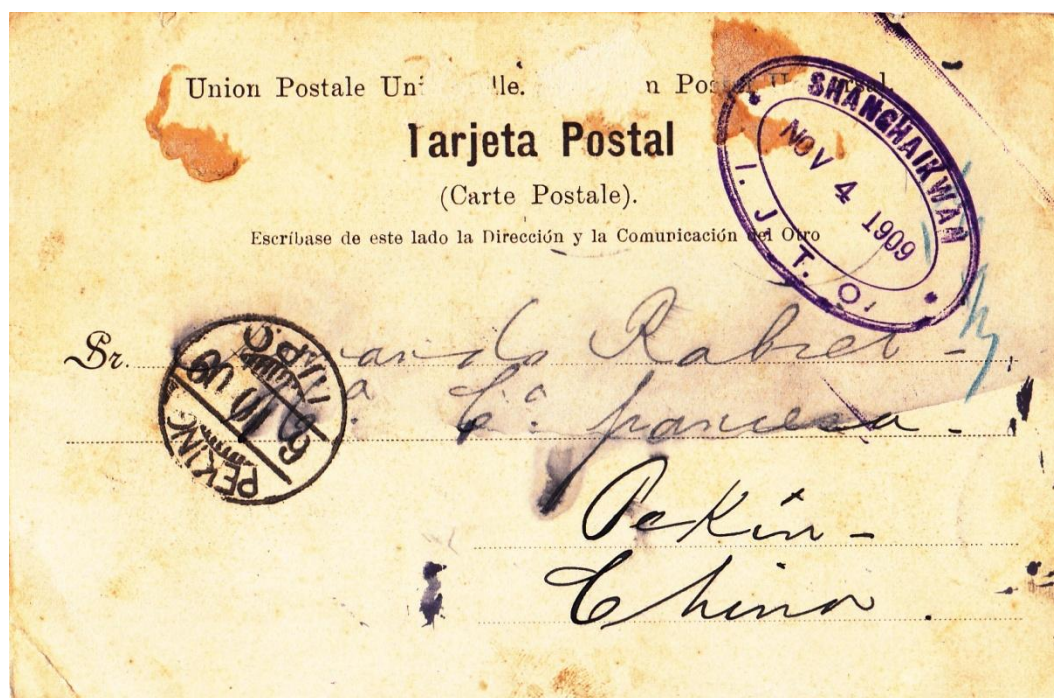 Union Postale
Tarjeta Postal
(Carte Postale).
Escríbase de este lado la Dirección y la Comunicación del Otro
SHANGHAIKWAN
NOV 4 1909
I. J. T. O.
Sr.
Rabiet -
Cª francesa -
PEKING
I.J.P.O
Pekin -
China.